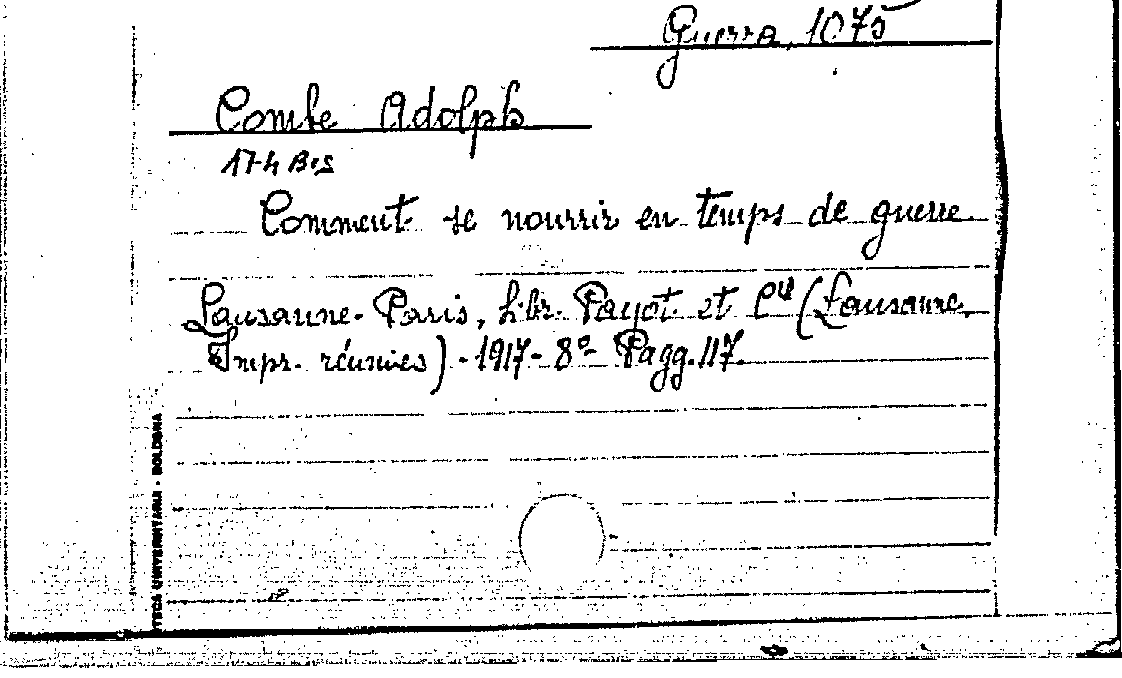 Guerra, 1075
Combe Adolph
174 Bis
Comment se nourrir en temps de guerre.
Lausanne-Paris, Libr. Payot et Cie (Lausanne,
Impr. réunies) - 1917 - 8° Pagg. 117.
TECA UNIVERSITARIA - BOLOGNA